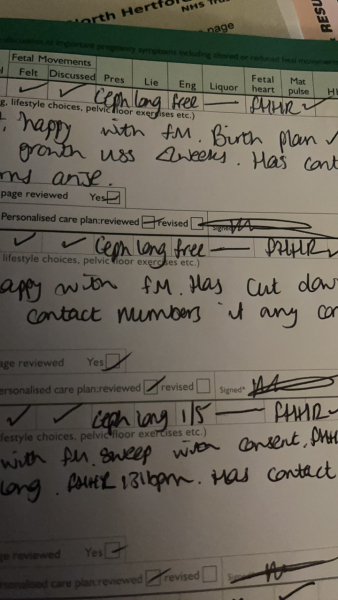 North Hertford
NHS Trus
page
RESU
discussion or important pregnancy symptoms including altered or reduced fetal movements
Fetal Movements
Felt Discussed Pres Lie Eng Liquor Fetal heart Mat pulse
✓ ✓ Ceph long free — FMHR ✓
g. lifestyle choices, pelvic floor exercises etc.)
happy with FM. Birth plan ✓
growth USS 2weeks. Has cont
rns arise.
page reviewed Yes ✓
Personalised care plan: reviewed revised Signed*
✓ ✓ Ceph long free — FMHR ✓
lifestyle choices, pelvic floor exercises etc.)
appy with FM. Has cut dow
contact numbers if any con
age reviewed Yes ✓
ersonalised care plan: reviewed ✓ revised Signed*
✓ ✓ Ceph long 1/5 — FMHR ✓
ifestyle choices, pelvic floor exercises etc.)
with FM. Sweep with consent. FMH
long. FMHR 131bpm. Has contact
ge reviewed Yes ✓
rsonalised care plan: reviewed ✓ revised Signed*